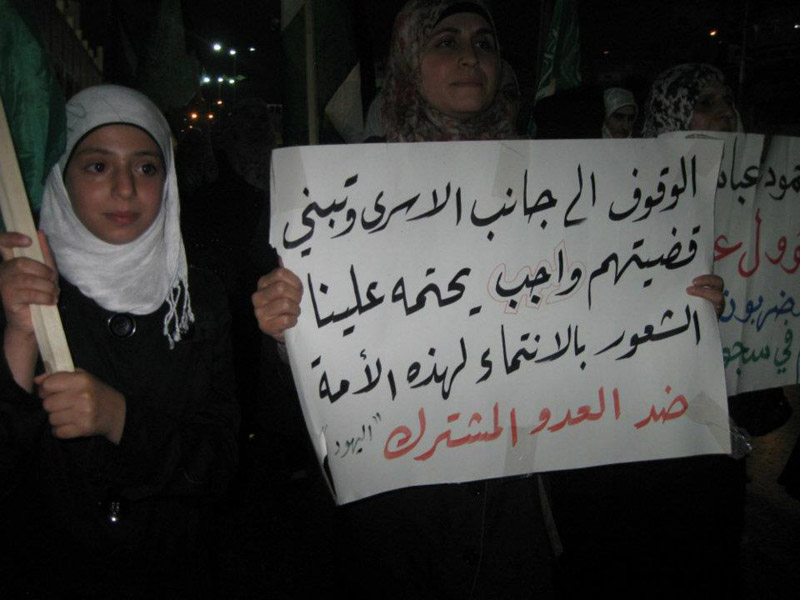 الوقوف الى جانب الاسرى وتبني
قضيتهم واجب يحتمه علينا
الشعور بالانتماء لهذه الأمة
ضد العدو المشترك "اليهود"
عباس
في